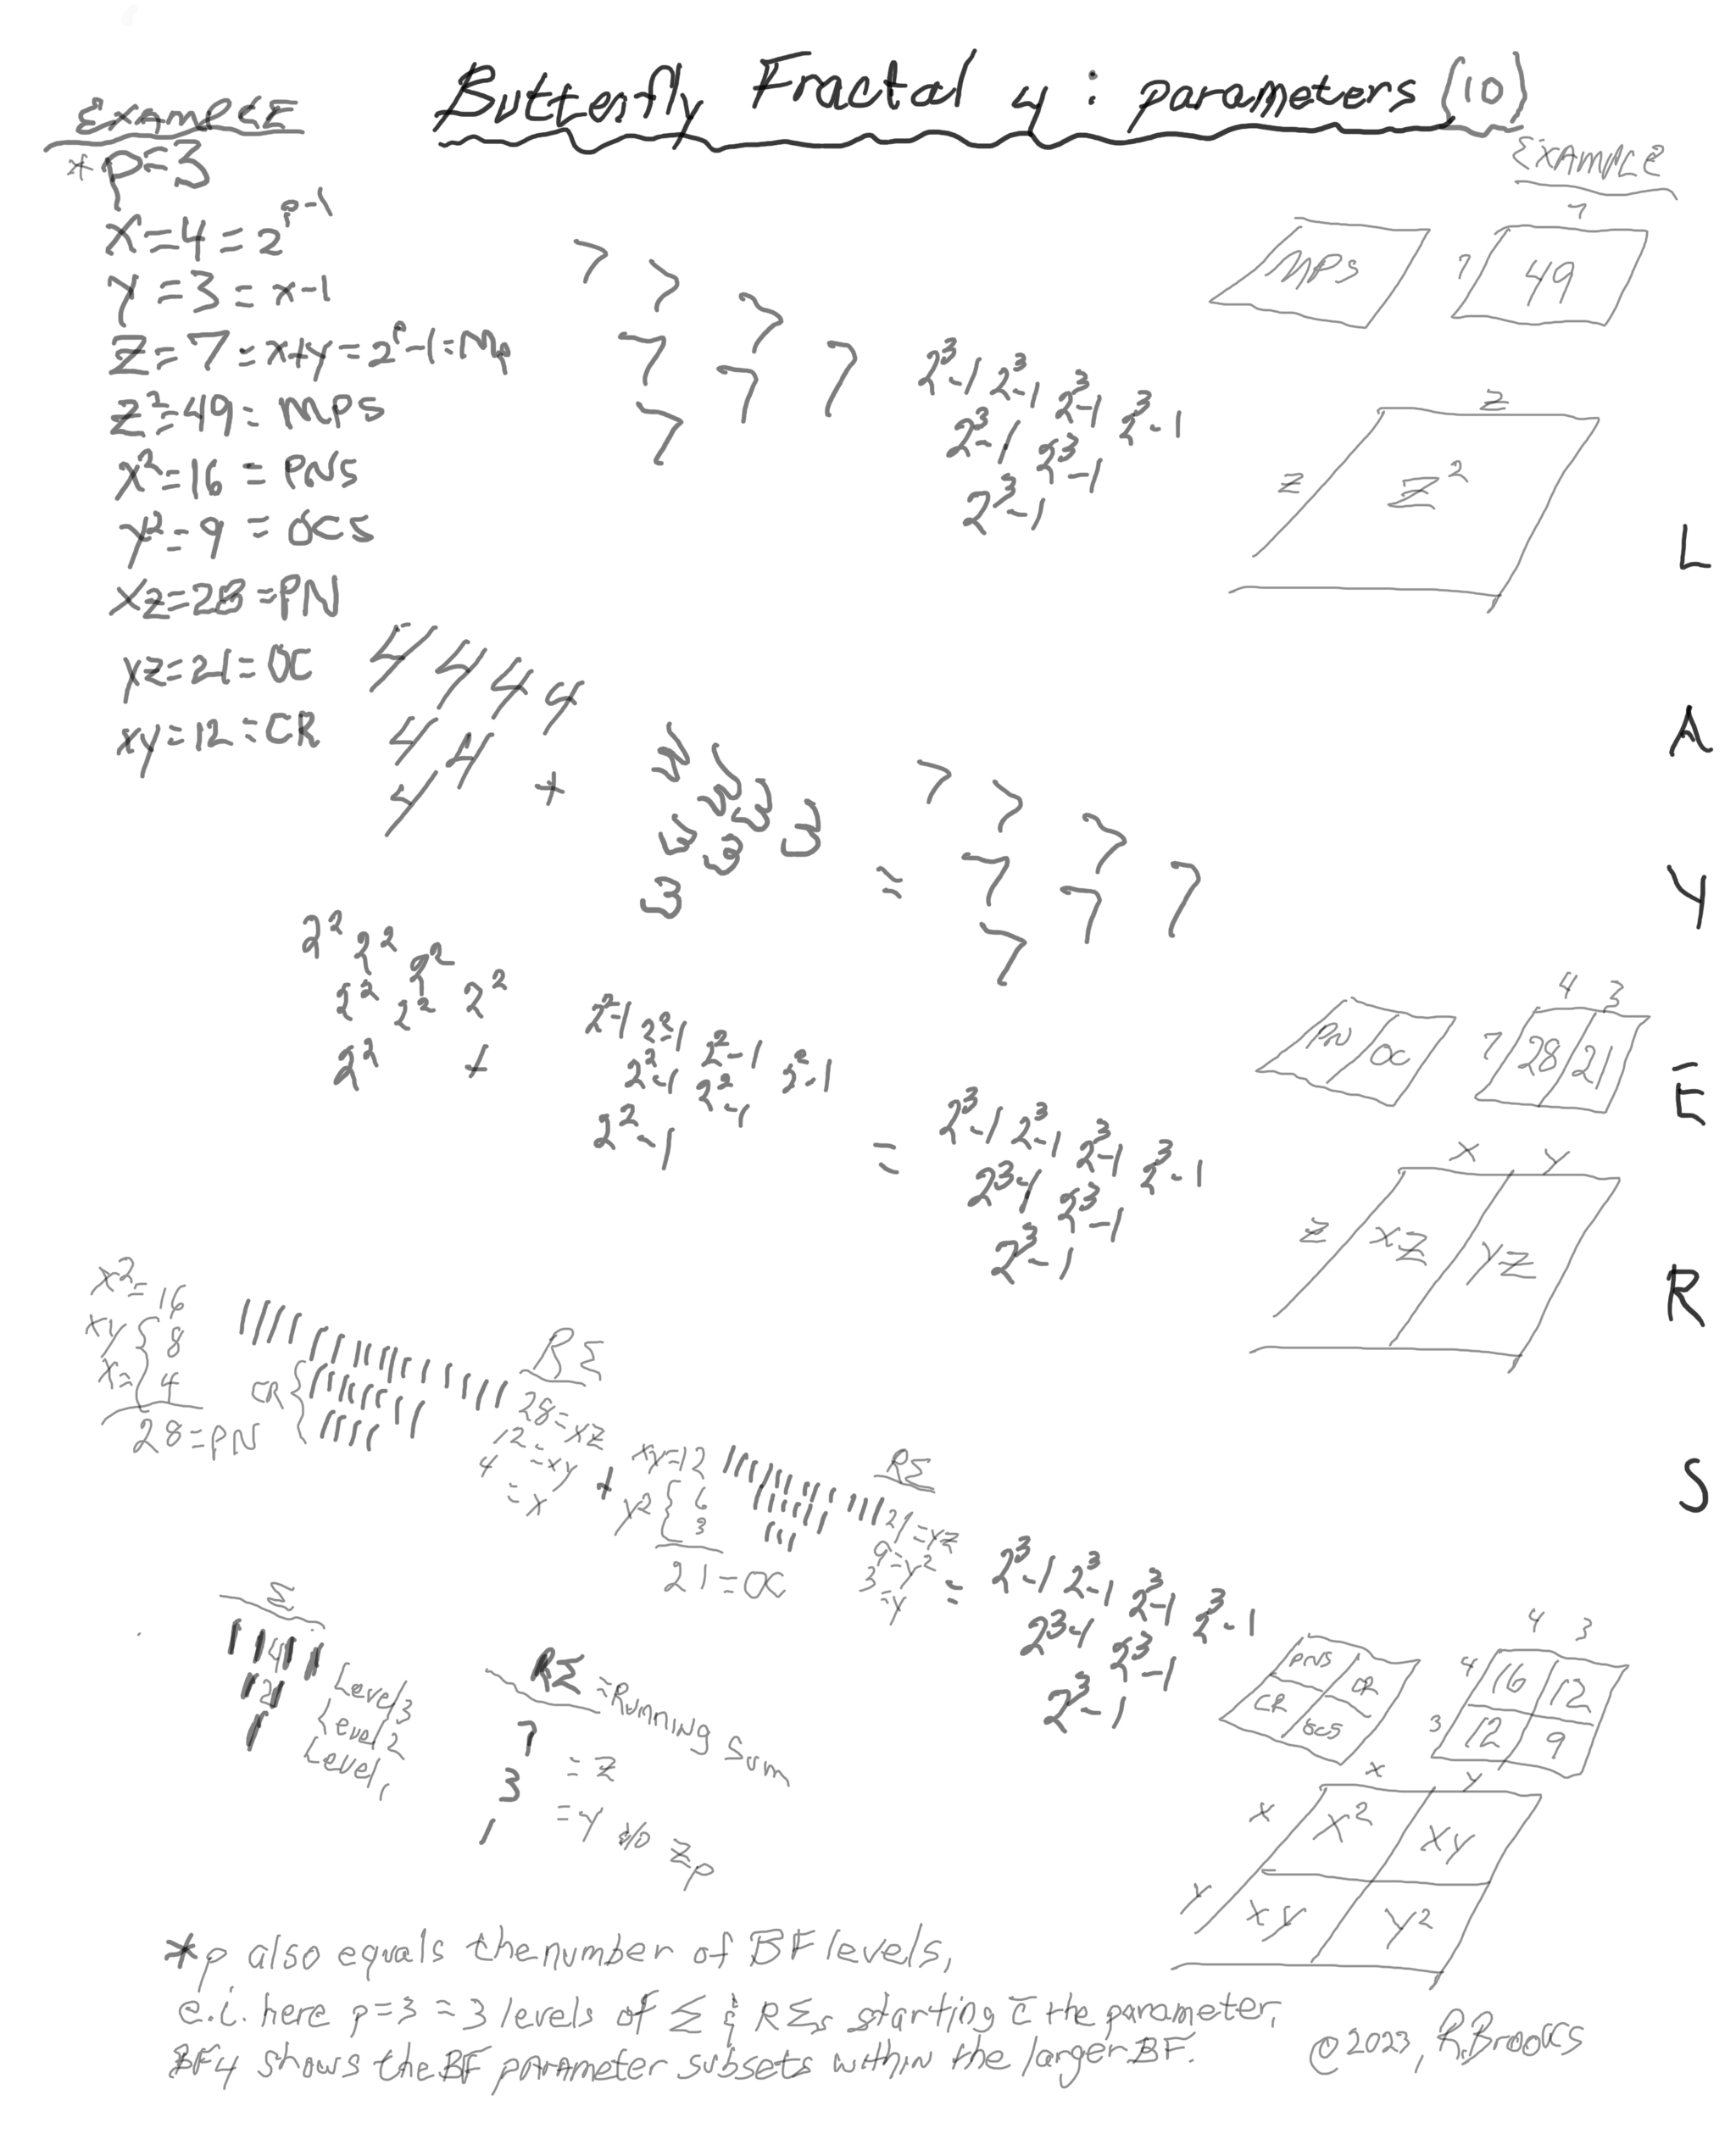 Butterfly Fractal 4 : parameters (10)
EXAMPLE
* p=3
x=4=2^p-1
y=3=x-1
z=7=x+y=2^p-1=Mp
z²=49=MPS
x²=16=PNS
y²=9=OCS
xz=28=PN
yz=21=OC
xy=12=CR
7 7 7 7
7 7
7
2³-1 2³-1 2³-1 2³-1
2³-1 2³-1
2³-1
EXAMPLE
7
MPS
7 49
z
z z²
L
A
Y
E
R
S
4 4 4 4
4 4
4
+
3 3 3 3
3 3
3
=
7 7 7 7
7 7
7
2² 2² 2² 2²
2² 2²
2²
+
2²-1 2²-1 2²-1 2²-1
2²-1 2²-1
2²-1
=
2³-1 2³-1 2³-1 2³-1
2³-1 2³-1
2³-1
4 3
PN OC
7 28 21
x y
z xz yz
x²=16
xy { 8
x= { 4
28=PN
CR {
RΣ
28=xz
12=xy
4=x
+
xy=12
y² { 6
3
21=OC
RΣ
21=yz
9=y²
3=y
=
2³-1 2³-1 2³-1 2³-1
2³-1 2³-1
2³-1
Σ
4
2
1
Level 3
Level 2
Level 1
RΣ = Running Sum
7 = z
3 = y
1
zp
4 3
PNS CR
CR OCS
4 16 12
3 12 9
x y
x x² xy
y xy y²
*p also equals the number of BF levels,
e.i. here p=3=3 levels of Σ & RΣs starting c̄ the parameter,
BF4 shows the BF parameter subsets within the larger BF.
©2023, R.Brooks